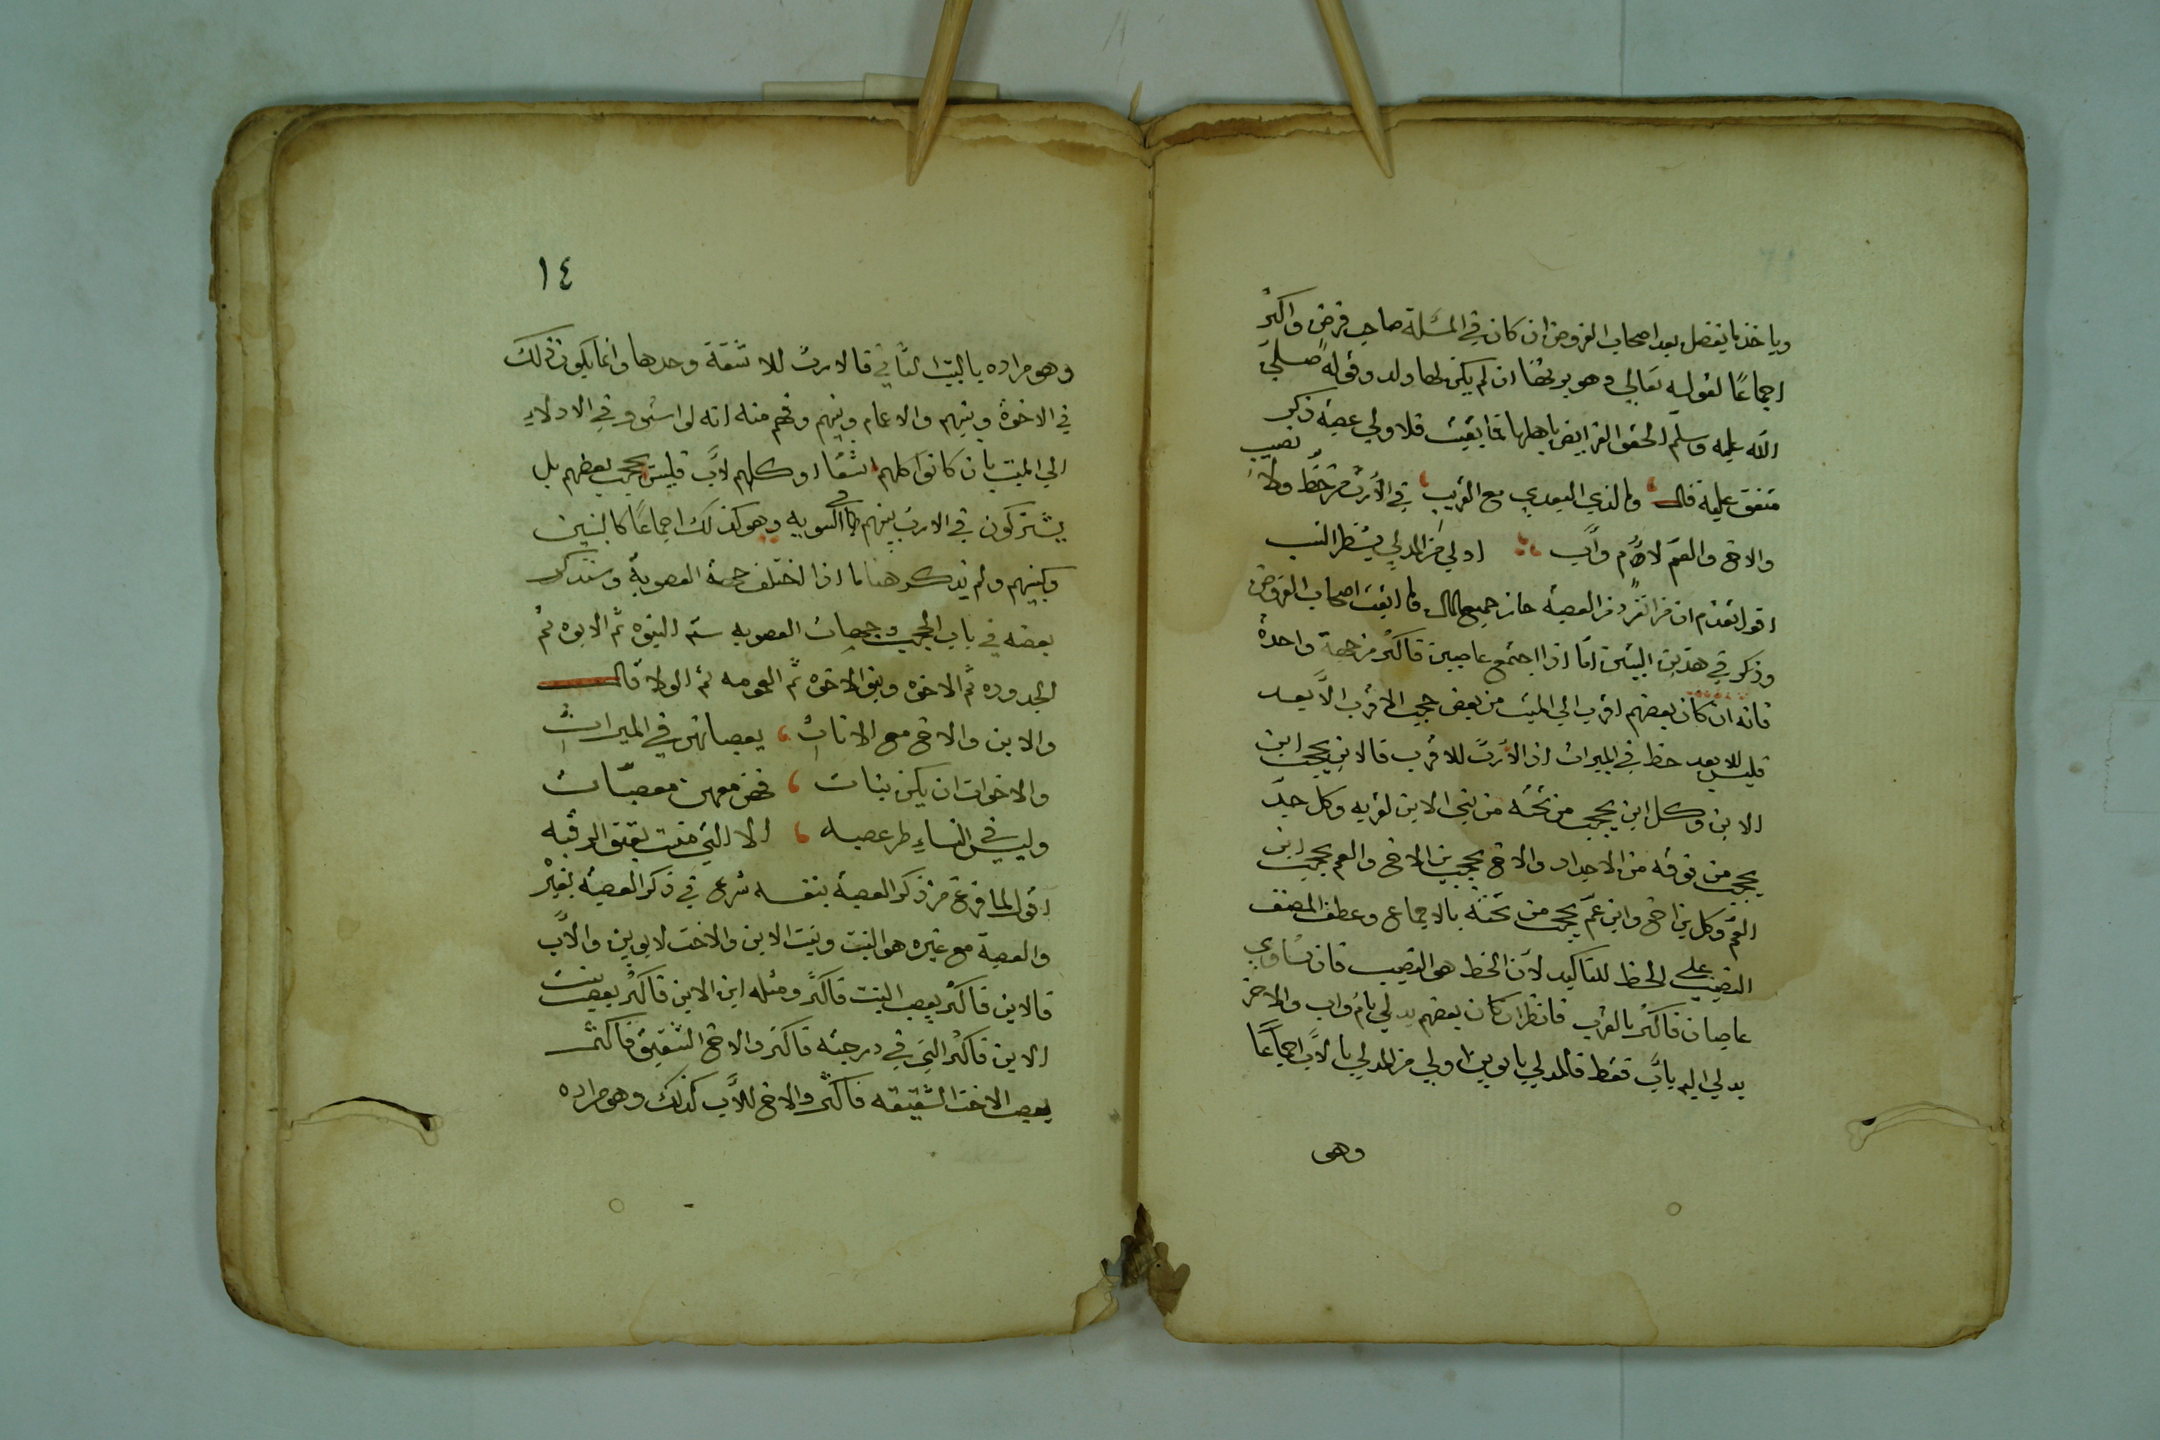 وياخذ ما يفضل بعد اصحاب الفروض ان كان في المسئلة صاحب فرض واكثر
اجماعًا لقوله تعالي وهو يرثها ان لم يكن لها ولد وقوله صلي
الله عليه وسلم الحقوا الفرايض باهلها فما ابقيت فلاولي عصبة ذكر
متفق عليه قال وما لذي البعدي مع القريب في الارث من حظ ولا نصيب
والاخ والعم لام واب اولي من المدلي بشطر النسب
اقول تقدم ان من انفرد من العصبة حاز جميع المال وما ابقت اصحاب الفروض
وذكر في هذين البيتين اما اذا اجتمع عاصبين فاكثر من جهة واحدة
فانه ان كان بعضهم اقرب الي الميت من بعض حجب الاقرب الابعد
فليس للابعد حظ في الميراث اذ الارث للاقرب فالابن يحجب ابن
الابن وكل ابن يحجب من تحته من بني الابن لقربه وكل جد
يحجب من فوقه من الاجداد والاخ يحجب بن الاخ والعم يحجب ابن
العم وكل بن اخ وابن عم يحجب من تحته بالاجماع وعطف المصنف
النصيب علي الحظ للتاكيد لان الحظ هو النصيب فان تساوي
عاصبان فاكثر بالقرب فانظر ان كان بعضهم يدلي بام واب والاخر
يدلي اليه باب فقط فالمدلي بابوين اولي من المدلي بالاب اجماعًا
وهو
١٤
وهو مراده بالبيت الثاني فالارث للاشقة وحدها وانما يكون ذلك
في الاخوة وبنيهم والاعمام وبنيهم وفهم منه انه لو استوو في الادلاء
الي الميت بان كانوا كلهم اشقا او كلهم لاب فليس يحجب بعضهم بل
يشتركون في الارث بينهم علي السويه وهو كذلك اجماعًا كالبنين
وبنيهم ولم يذكر هنا ما اذا اختلف جهة العصوبة وسنذكر
بعضه في باب الحجب وجهات العصوبه ستة البنوه ثم الابوه ثم
الجدوده ثم الاخوه وبنو الاخوه ثم العمومه ثم الولا قال
والابن والاخ مع الاناث يعصبانهن في الميراث
والاخوات ان يكن بنات فهن معهن معصبات
وليس في النساء طر عصبه الا التي منت بعتق الرقبه
اقول لما فرغ من ذكر العصبة بنفسه شرع في ذكر العصبة بغيره
والعصبة مع غيره هو البنت وبنت الابن والاخت لابوين والاب
فالابن فاكثر يعصب البنت فاكثر ومثله ابن الابن فاكثر يعصب بنت
الابن فاكثر التي في درجته فاكثر والاخ الشقيق فاكثر
يعصب الاخت الشقيقه فاكثر والاخ للاب كذلك وهو مراده